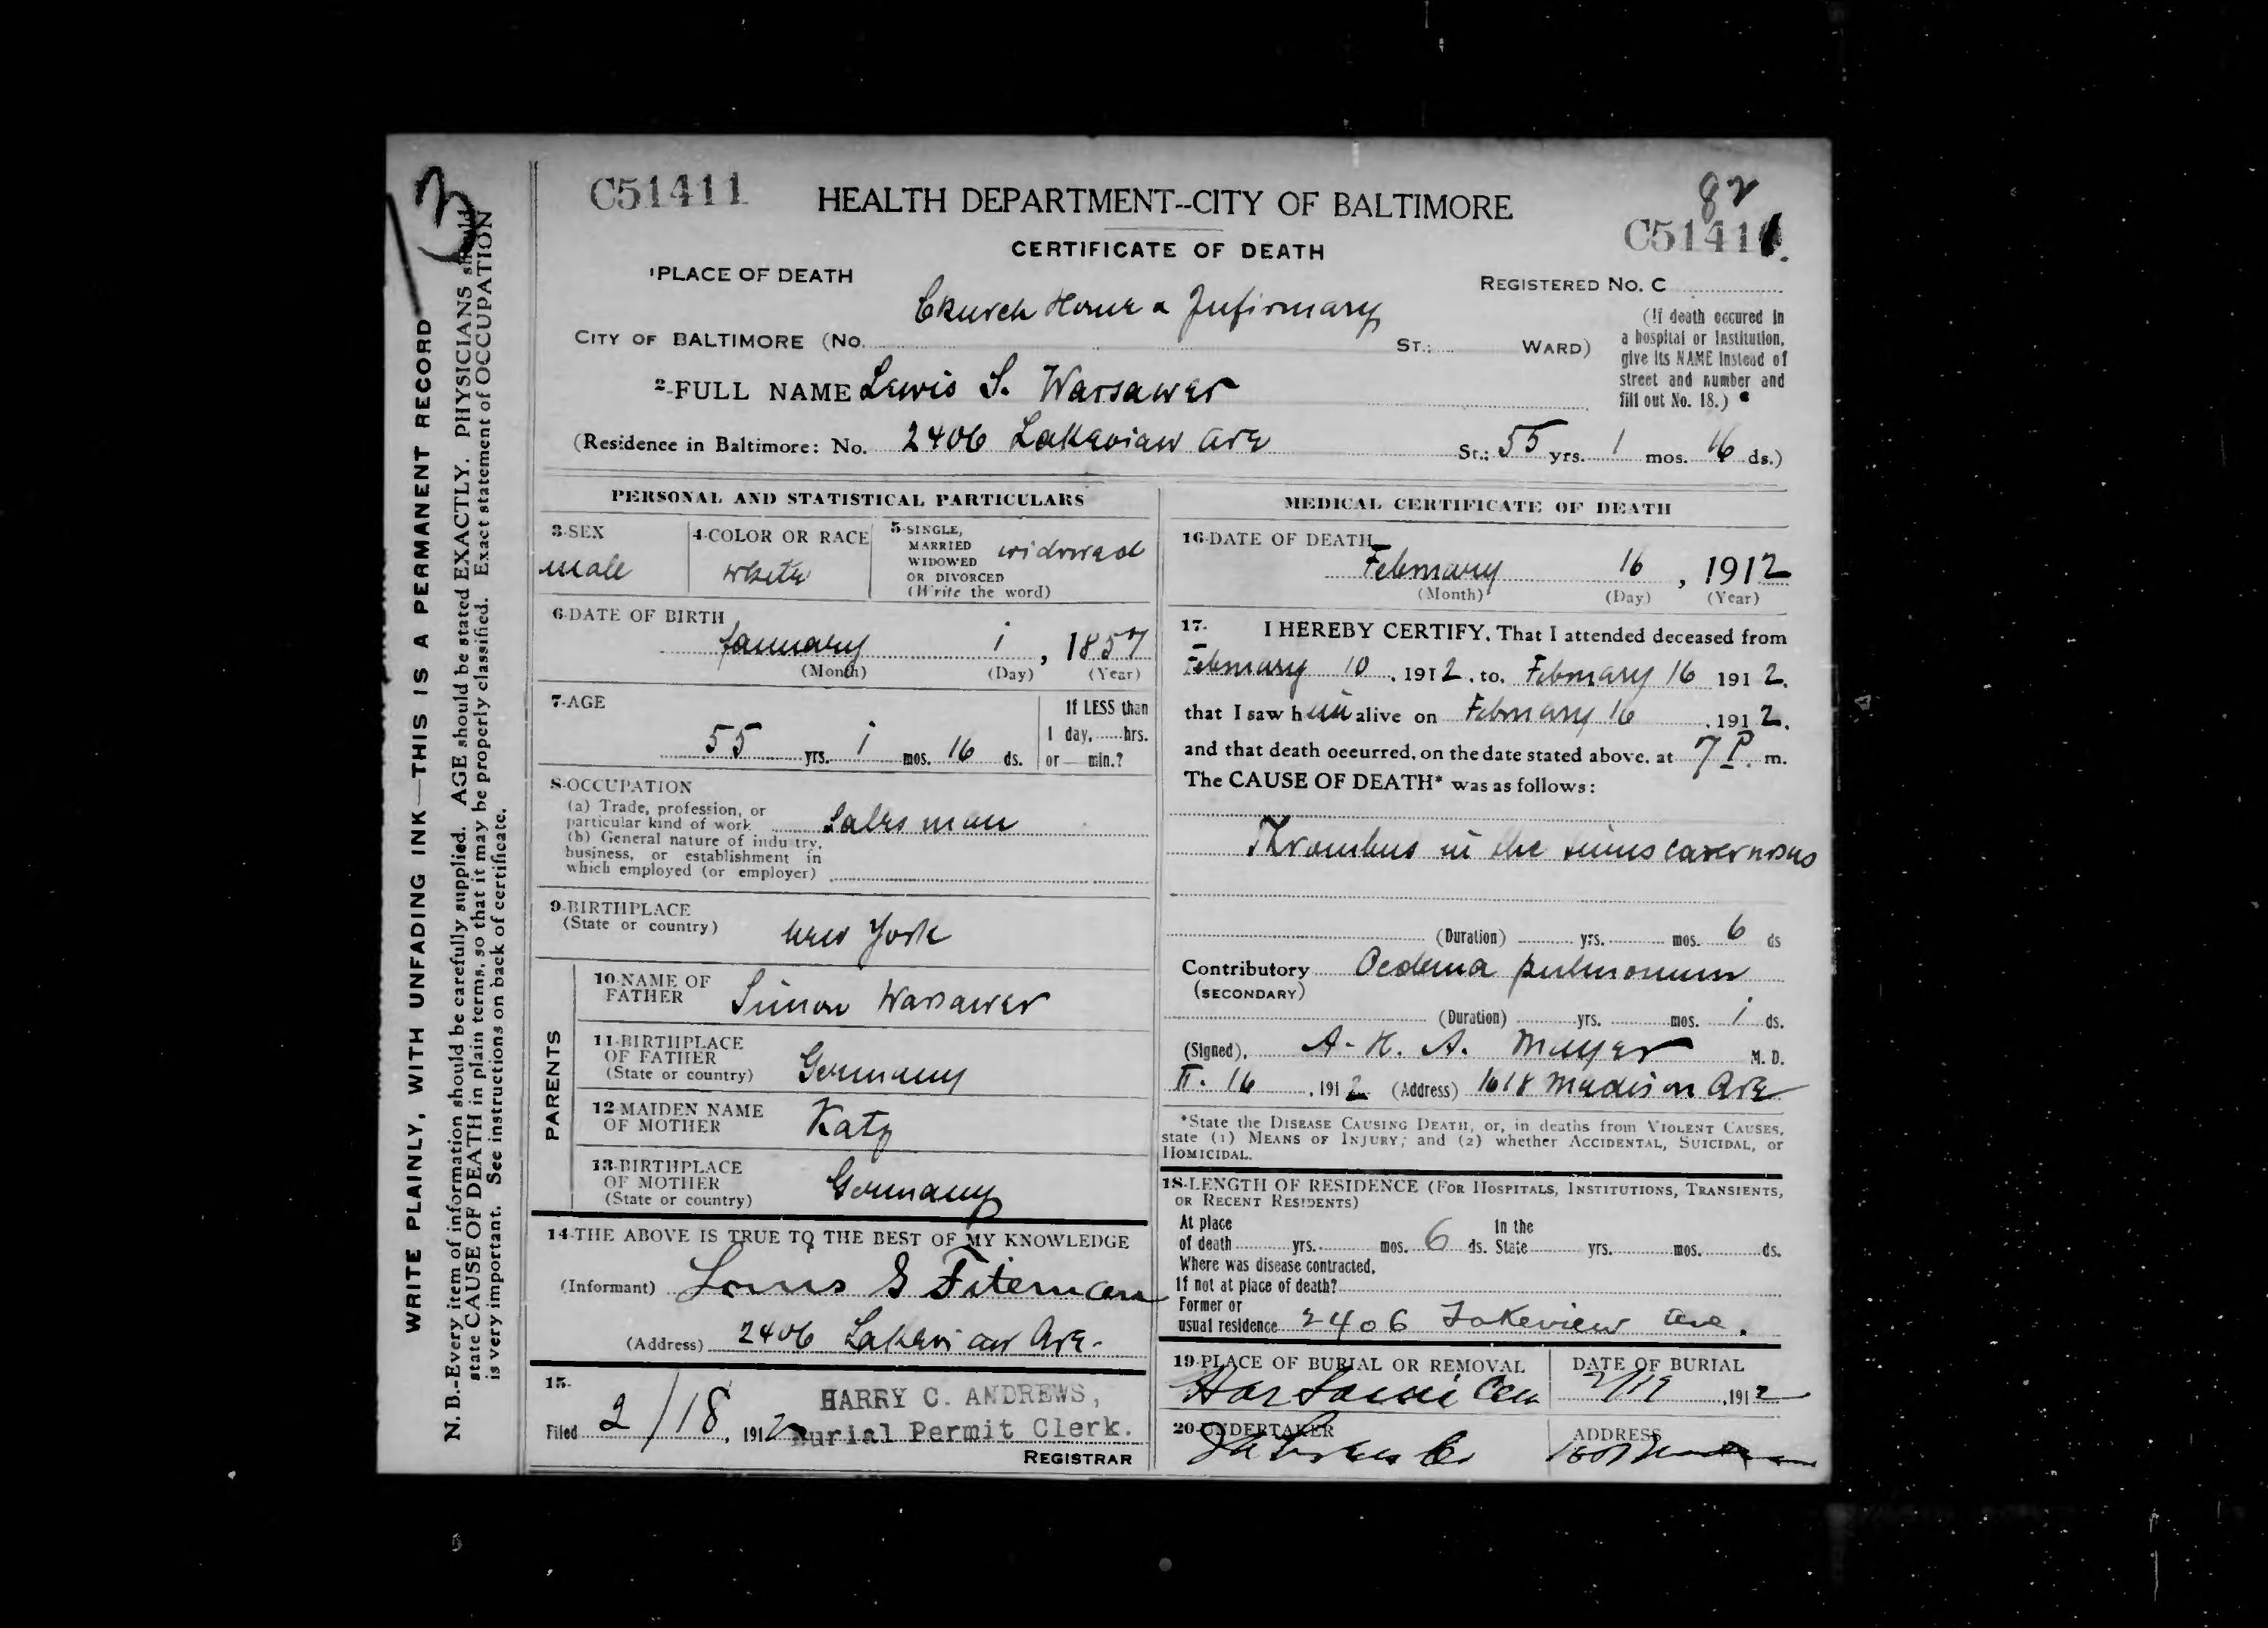 3
WRITE PLAINLY, WITH UNFADING INK—THIS IS A PERMANENT RECORD
N. B.-Every item of information should be carefully supplied. AGE should be stated EXACTLY. PHYSICIANS should
state CAUSE OF DEATH in plain terms, so that it may be properly classified. Exact statement of OCCUPATION
is very important. See instructions on back of certificate.
C51411
HEALTH DEPARTMENT--CITY OF BALTIMORE
82
CERTIFICATE OF DEATH
C51411.
1 PLACE OF DEATH
REGISTERED No. C
Church Home & Infirmary
CITY OF BALTIMORE (No. ST.; WARD)
(If death occured in
a hospital or Institution,
give its NAME instead of
street and number and
fill out No. 18.)
2-FULL NAME Lewis S. Warsawer
(Residence in Baltimore: No. 2406 Lakeview Ave St.; 55 yrs. 1 mos. 16 ds.)
PERSONAL AND STATISTICAL PARTICULARS
3-SEX
male
4-COLOR OR RACE
white
5-SINGLE,
MARRIED
WIDOWED
OR DIVORCED
(Write the word)
widowed
6-DATE OF BIRTH
January 1, 1857
(Month) (Day) (Year)
7-AGE
55 yrs. 1 mos. 16 ds.
If LESS than
1 day, hrs.
or min.?
8-OCCUPATION
(a) Trade, profession, or
particular kind of work Salesman
(b) General nature of industry,
business, or establishment in
which employed (or employer)
9-BIRTHPLACE
(State or country) New York
PARENTS
10-NAME OF
FATHER Simon Warsawer
11-BIRTHPLACE
OF FATHER
(State or country) Germany
12-MAIDEN NAME
OF MOTHER Katz
13-BIRTHPLACE
OF MOTHER
(State or country) Germany
14-THE ABOVE IS TRUE TO THE BEST OF MY KNOWLEDGE
(Informant) Louis S Fiterman
(Address) 2406 Lakeview Ave.
15-
Filed 2/18, 1912
HARRY C. ANDREWS,
Burial Permit Clerk.
REGISTRAR
MEDICAL CERTIFICATE OF DEATH
16-DATE OF DEATH
February 16, 1912
(Month) (Day) (Year)
17- I HEREBY CERTIFY, That I attended deceased from
February 10, 1912, to, February 16 1912,
that I saw him alive on February 16, 1912,
and that death occurred, on the date stated above, at 7 P. m.
The CAUSE OF DEATH* was as follows:
Thrombus in the sinus cavernosus
(Duration) yrs. mos. 6 ds
Contributory Oedema pulmonum
(SECONDARY)
(Duration) yrs. mos. 1 ds.
(Signed), A. K. A. Mayer M. D.
II. 16, 1912 (Address) 1618 Madison Ave
*State the DISEASE CAUSING DEATH, or, in deaths from VIOLENT CAUSES,
state (1) MEANS OF INJURY; and (2) whether ACCIDENTAL, SUICIDAL, or
HOMICIDAL.
18-LENGTH OF RESIDENCE (FOR HOSPITALS, INSTITUTIONS, TRANSIENTS,
OR RECENT RESIDENTS)
At place
of death yrs. mos. 6 ds.
In the
State yrs. mos. ds.
Where was disease contracted,
If not at place of death?
Former or
usual residence 2406 Lakeview Ave.
19-PLACE OF BURIAL OR REMOVAL
Har Sinai Cem
DATE OF BURIAL
2/19, 1912
20-UNDERTAKER
ADDRESS